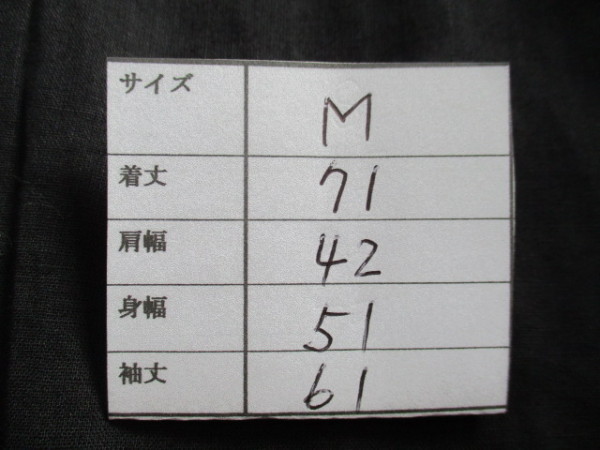 サイズ M
着丈 71
肩幅 42
身幅 51
袖丈 61